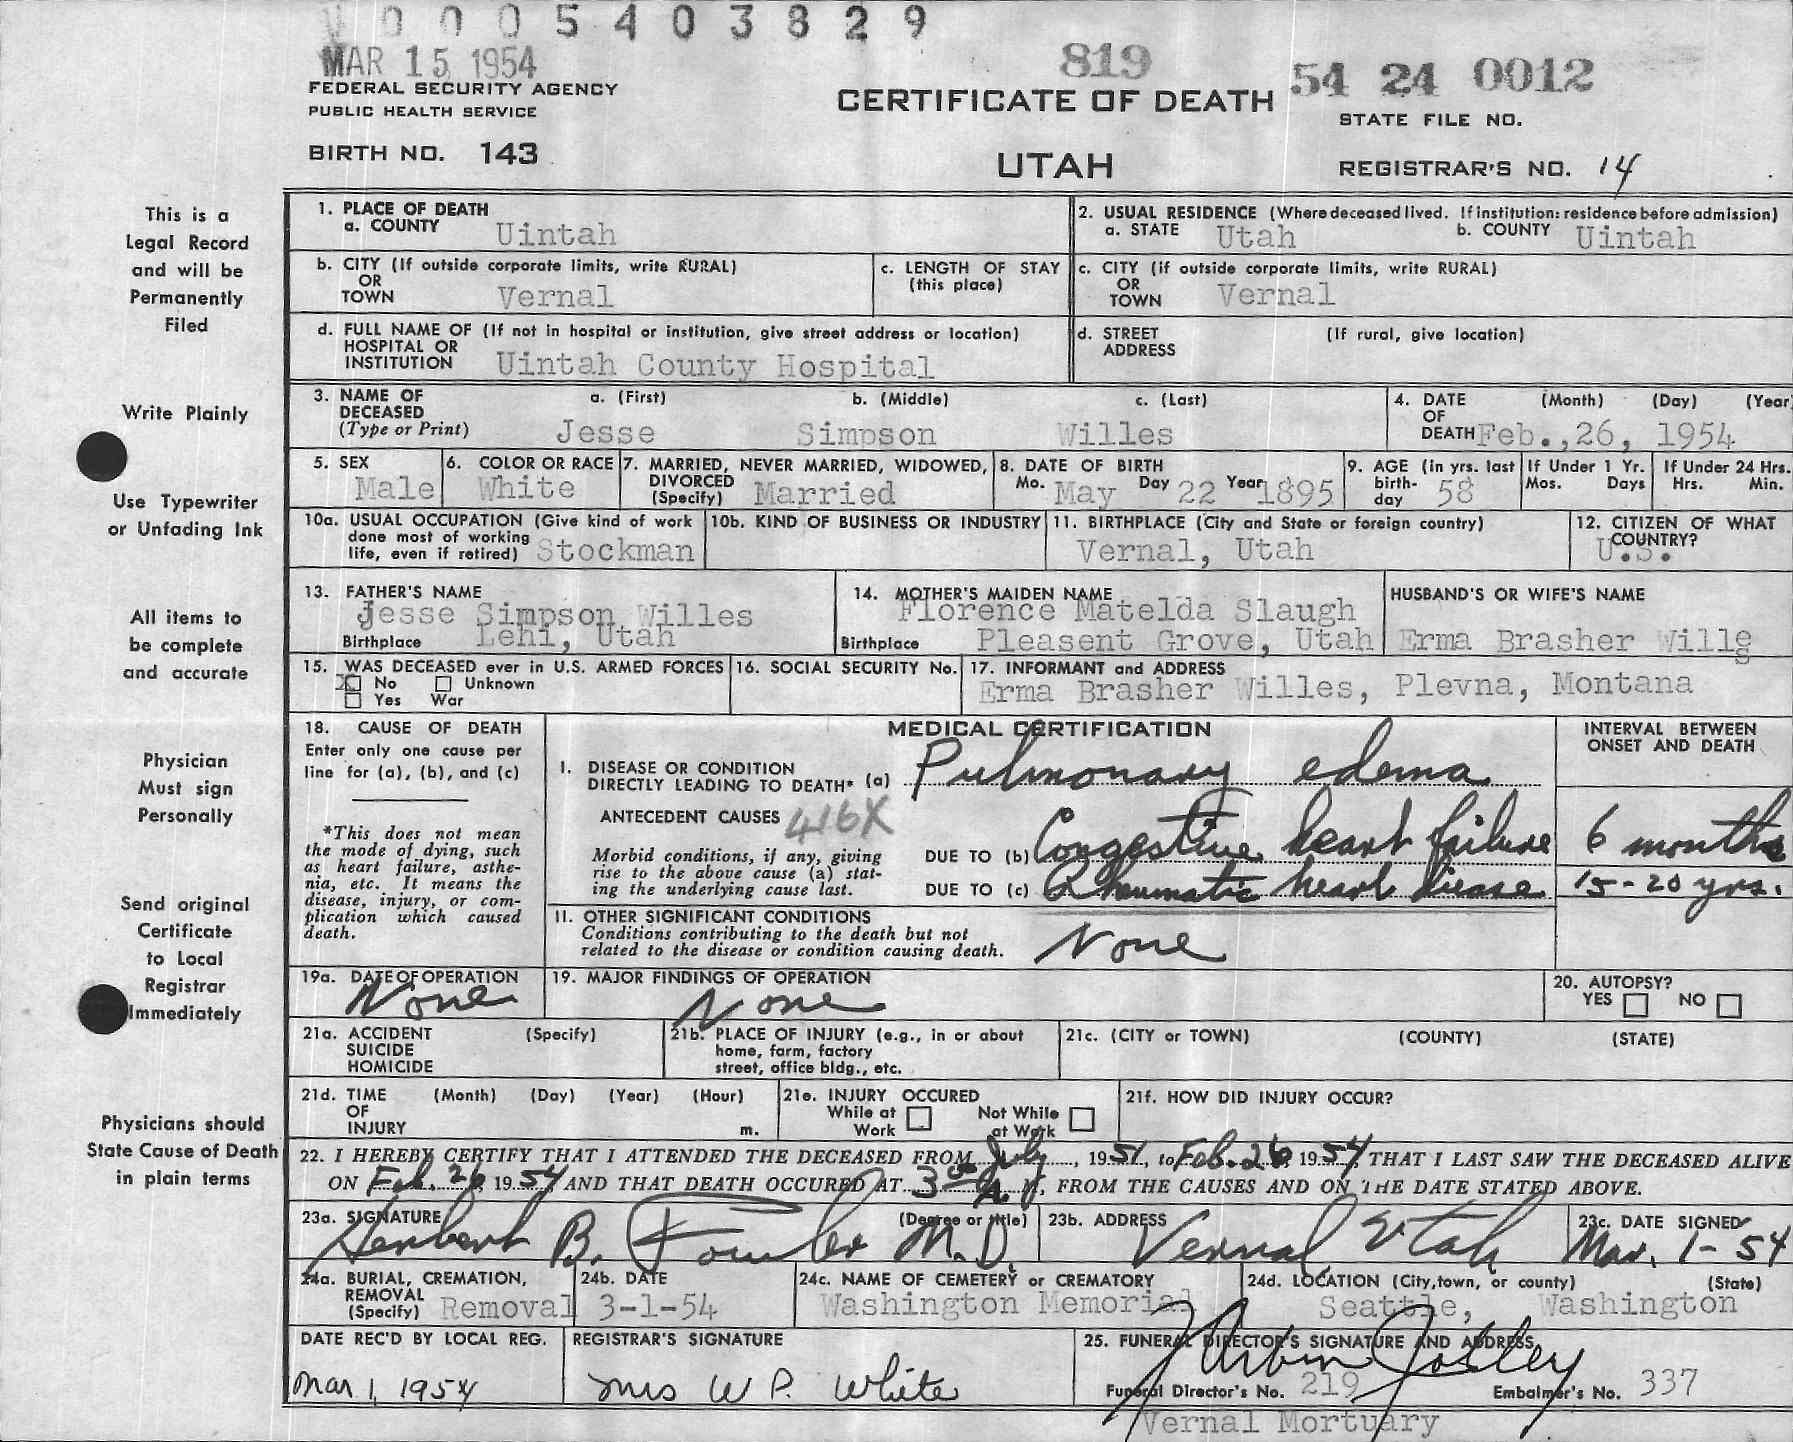 V 0 0 0 5 4 0 3 8 2 9
MAR 15 1954
FEDERAL SECURITY AGENCY
PUBLIC HEALTH SERVICE
BIRTH NO. 143
819
CERTIFICATE OF DEATH
UTAH
54 24 0012
STATE FILE NO.
REGISTRAR'S NO. 14
This is a
Legal Record
and will be
Permanently
Filed
Write Plainly
Use Typewriter
or Unfading Ink
All items to
be complete
and accurate
Physician
Must sign
Personally
Send original
Certificate
to Local
Registrar
Immediately
Physicians should
State Cause of Death
in plain terms
1. PLACE OF DEATH
a. COUNTY Uintah
2. USUAL RESIDENCE (Where deceased lived. If institution: residence before admission)
a. STATE Utah b. COUNTY Uintah
b. CITY (If outside corporate limits, write RURAL)
OR
TOWN Vernal
c. LENGTH OF STAY
(this place)
c. CITY (if outside corporate limits, write RURAL)
OR
TOWN Vernal
d. FULL NAME OF (If not in hospital or institution, give street address or location)
HOSPITAL OR
INSTITUTION Uintah County Hospital
d. STREET (If rural, give location)
ADDRESS
3. NAME OF a. (First) b. (Middle) c. (Last)
DECEASED
(Type or Print) Jesse Simpson Willes
4. DATE (Month) (Day) (Year
OF
DEATH Feb.,26, 1954
5. SEX
Male
6. COLOR OR RACE
White
7. MARRIED, NEVER MARRIED, WIDOWED,
DIVORCED
(Specify) Married
8. DATE OF BIRTH
Mo. May Day 22 Year 1895
9. AGE (in yrs. last
birth-
day 58
If Under 1 Yr.
Mos. Days
If Under 24 Hrs.
Hrs. Min.
10a. USUAL OCCUPATION (Give kind of work
done most of working
life, even if retired) Stockman
10b. KIND OF BUSINESS OR INDUSTRY
11. BIRTHPLACE (City and State or foreign country)
Vernal, Utah
12. CITIZEN OF WHAT
COUNTRY?
U.S.
13. FATHER'S NAME
Jesse Simpson Willes
Birthplace Lehi, Utah
14. MOTHER'S MAIDEN NAME
Florence Matelda Slaugh
Birthplace Pleasent Grove, Utah
HUSBAND'S OR WIFE'S NAME
Erma Brasher Willes
15. WAS DECEASED ever in U.S. ARMED FORCES
X No Unknown
Yes War
16. SOCIAL SECURITY No.
17. INFORMANT and ADDRESS
Erma Brasher Willes, Plevna, Montana
18. CAUSE OF DEATH
Enter only one cause per
line for (a), (b), and (c)
*This does not mean
the mode of dying, such
as heart failure, asthe-
nia, etc. It means the
disease, injury, or com-
plication which caused
death.
MEDICAL CERTIFICATION
I. DISEASE OR CONDITION
DIRECTLY LEADING TO DEATH* (a) Pulmonary edema
ANTECEDENT CAUSES 416X
Morbid conditions, if any, giving
rise to the above cause (a) stat-
ing the underlying cause last.
DUE TO (b) Congestive heart failure
DUE TO (c) Rheumatic heart disease
INTERVAL BETWEEN
ONSET AND DEATH
6 months
15-20 yrs.
II. OTHER SIGNIFICANT CONDITIONS
Conditions contributing to the death but not
related to the disease or condition causing death.
None
19a. DATE OF OPERATION
None
19. MAJOR FINDINGS OF OPERATION
None
20. AUTOPSY?
YES NO
21a. ACCIDENT (Specify)
SUICIDE
HOMICIDE
21b. PLACE OF INJURY (e.g., in or about
home, farm, factory
street, office bldg., etc.
21c. (CITY or TOWN) (COUNTY) (STATE)
21d. TIME (Month) (Day) (Year) (Hour)
OF
INJURY m.
21e. INJURY OCCURED
While at Not While
Work at Work
21f. HOW DID INJURY OCCUR?
22. I HEREBY CERTIFY THAT I ATTENDED THE DECEASED FROM July, 1951, to Feb. 26 1954, THAT I LAST SAW THE DECEASED ALIVE
ON Feb. 26, 1954 AND THAT DEATH OCCURED AT 3 00 A. M, FROM THE CAUSES AND ON THE DATE STATED ABOVE.
23a. SIGNATURE (Degree or title)
Herbert B. Fowler M.D.
23b. ADDRESS
Vernal Utah
23c. DATE SIGNED
Mar. 1-54
24a. BURIAL, CREMATION,
REMOVAL
(Specify) Removal
24b. DATE
3-1-54
24c. NAME OF CEMETERY or CREMATORY
Washington Memorial
24d. LOCATION (City,town, or county) (State)
Seattle, Washington
DATE REC'D BY LOCAL REG.
Mar 1, 1954
REGISTRAR'S SIGNATURE
Mrs W P. White
25. FUNERAL DIRECTOR'S SIGNATURE AND ADDRESS
Funeral Director's No. 219 Embalmer's No. 337
Vernal Mortuary